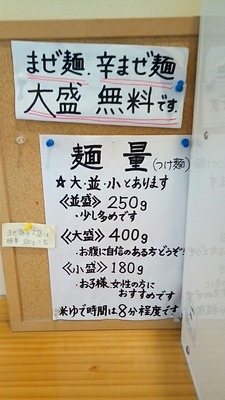 まぜ麺.辛まぜ麺
大盛 無料です.
麺 量(つけ麺)
☆大・並・小とあります
《並盛》250g
・少し多めです
《大盛》400g
・お腹に自信のある方どうぞ
《小盛》180g
・お子様、女性の方に
おすすめです
※ゆで時間は8分程度です
まぜ麺の大盛りは